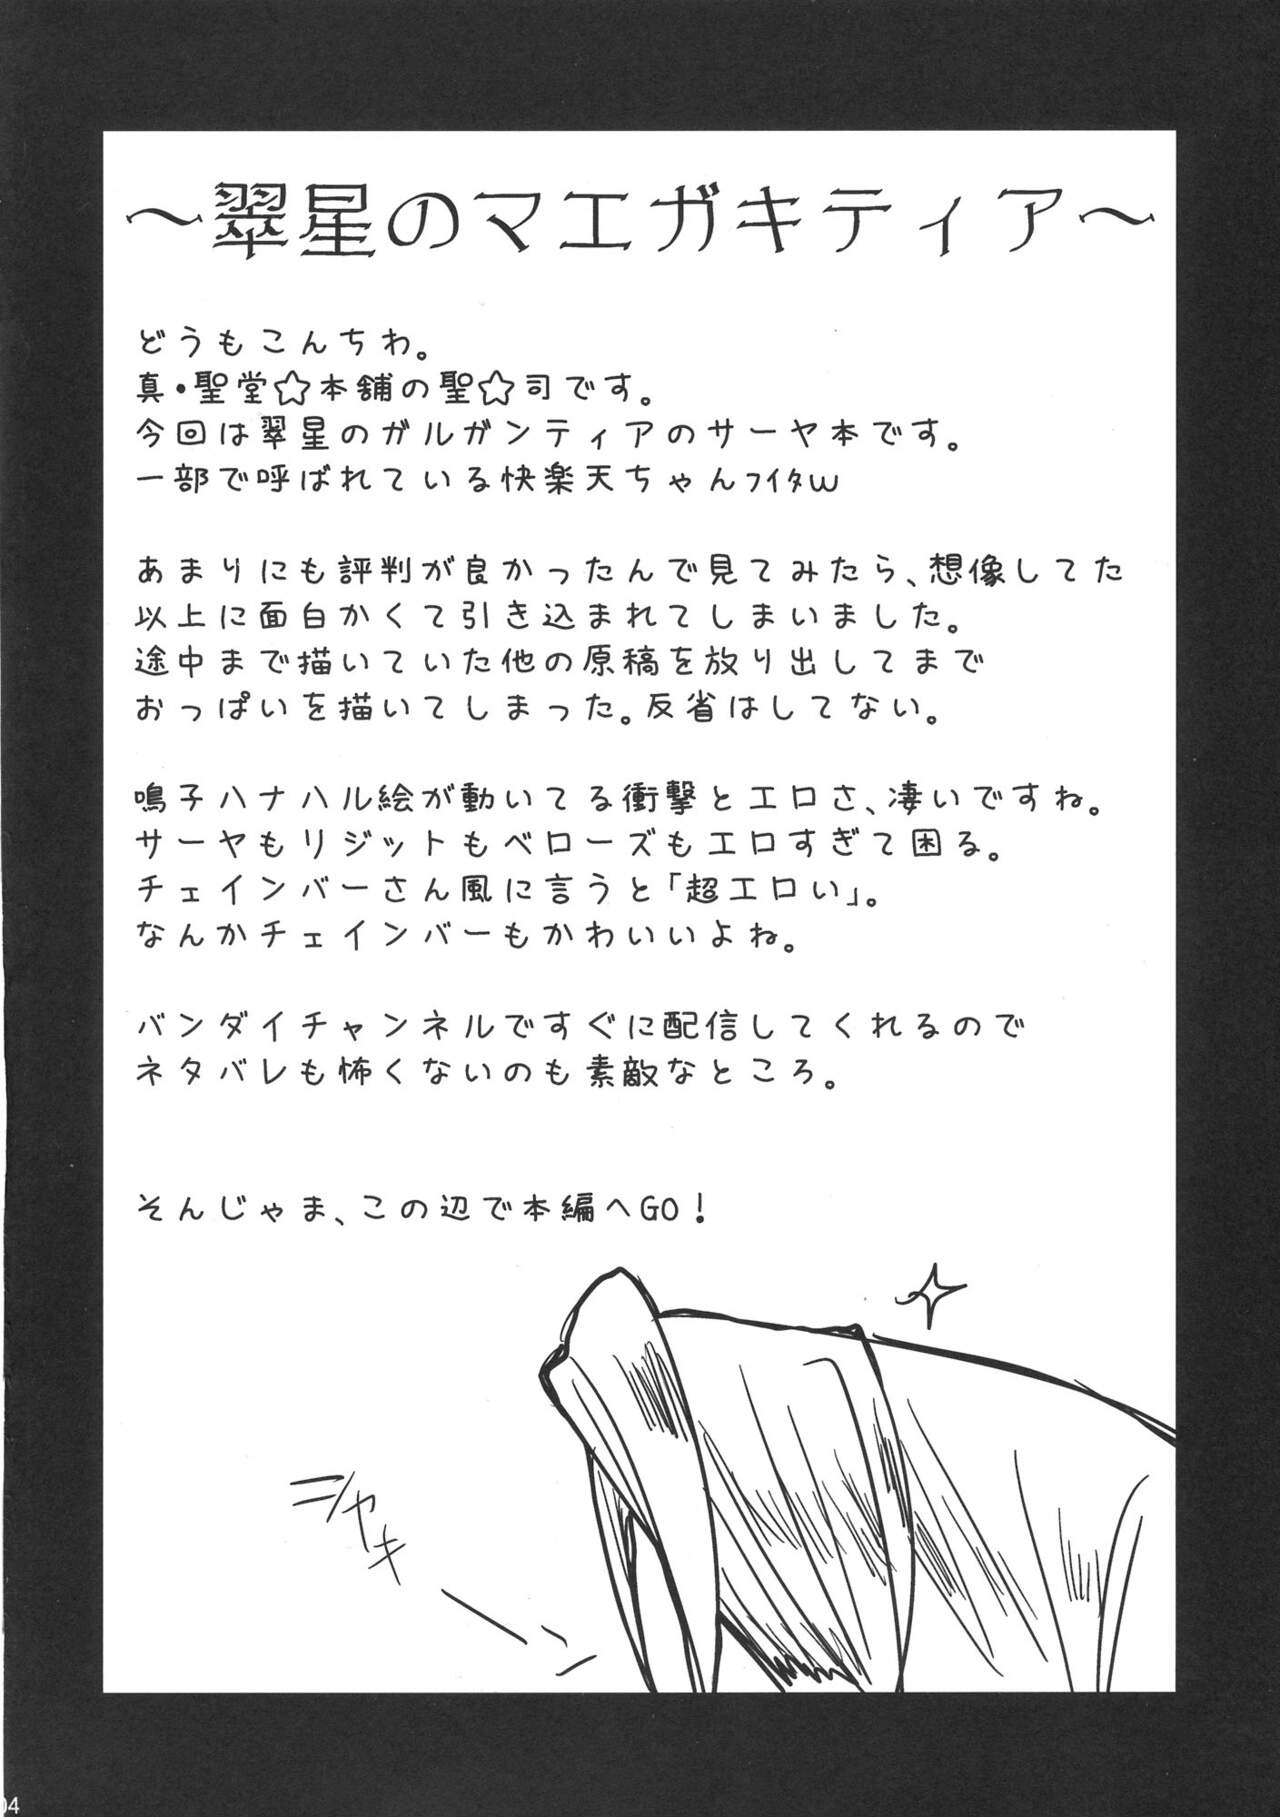 ～翠星のマエガキティア～
どうもこんちわ。
真・聖堂☆本舗の聖☆司です。
今回は翠星のガルガンティアのサーヤ本です。
一部で呼ばれている快楽天ちゃんﾌｲﾀw
あまりにも評判が良かったんで見てみたら、想像してた
以上に面白かくて引き込まれてしまいました。
途中まで描いていた他の原稿を放り出してまで
おっぱいを描いてしまった。反省はしてない。
鳴子ハナハル絵が動いてる衝撃とエロさ、凄いですね。
サーヤもリジットもベローズもエロすぎて困る。
チェインバーさん風に言うと「超エロい」。
なんかチェインバーもかわいいよね。
バンダイチャンネルですぐに配信してくれるので
ネタバレも怖くないのも素敵なところ。
そんじゃま、この辺で本編へGO！
ニャキ
04